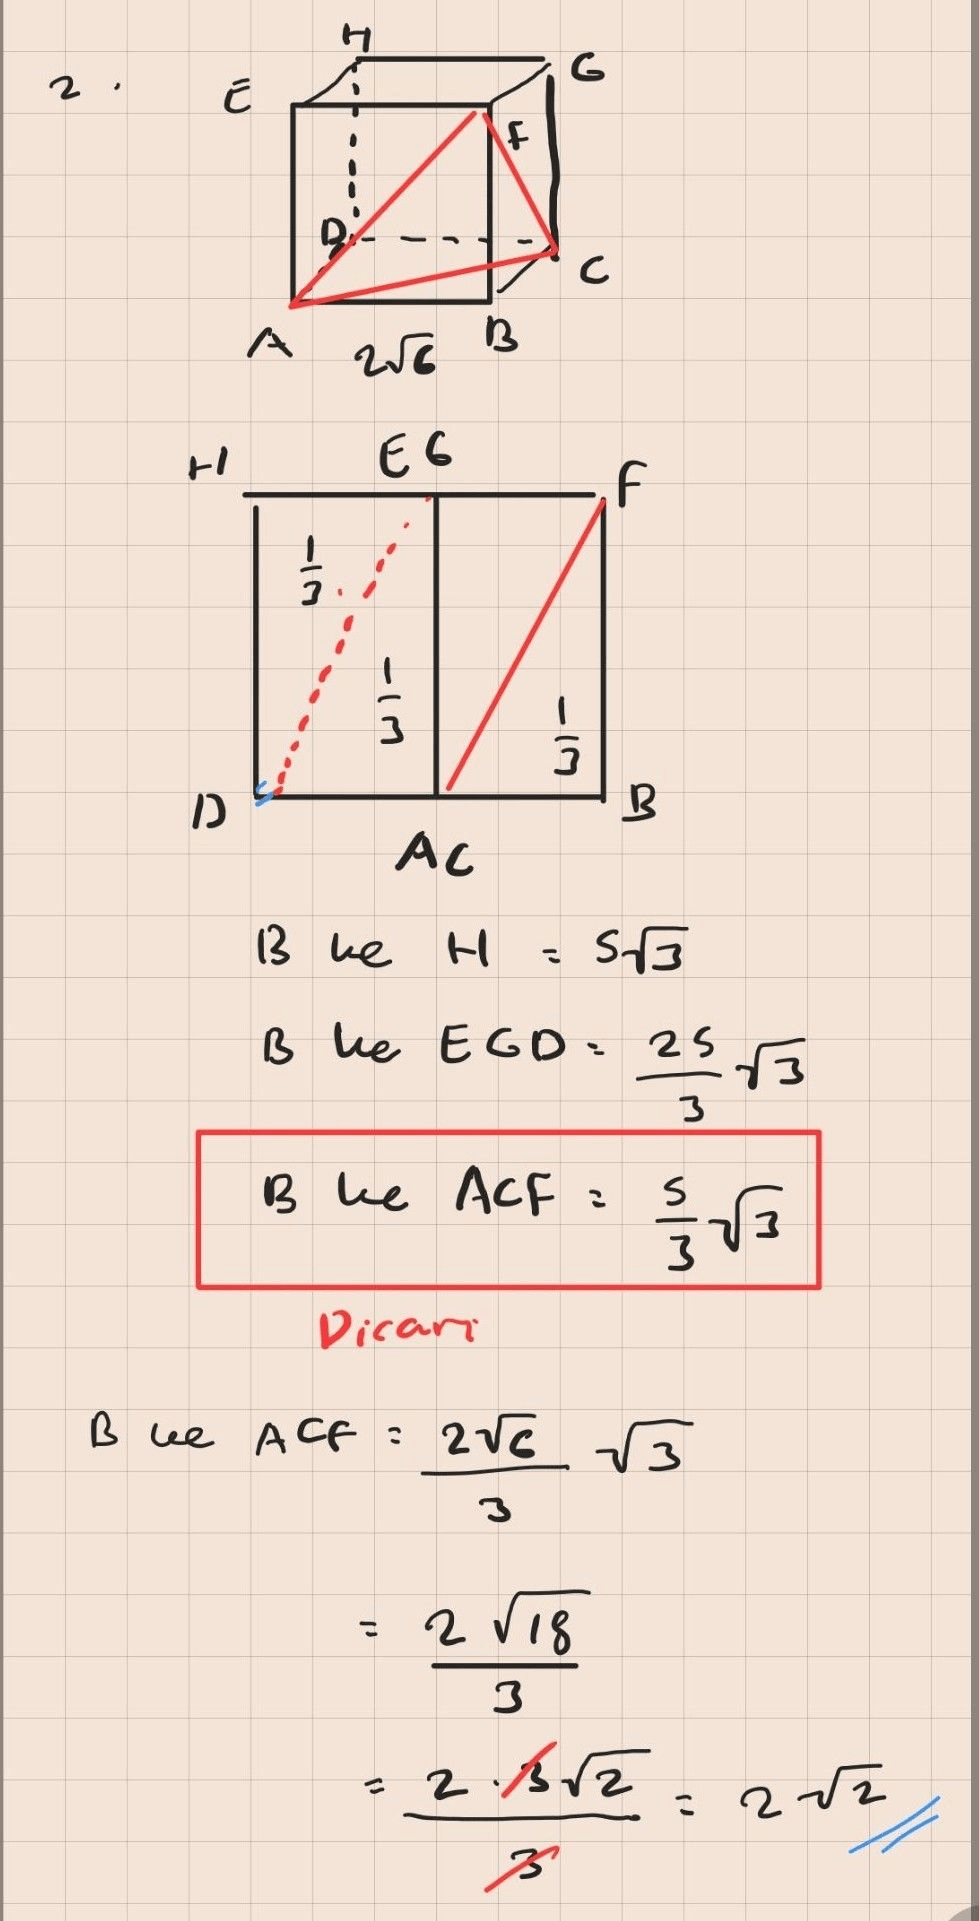 2.
H
G
E
F
D
C
A
B
2√6
H
E G
F
1/3
1/3
1/3
D
B
A C
B ke H = S√3
B ke EGD = 2S/3 √3
B ke ACF = S/3 √3
Dicari
B ke ACF = 2√6/3 √3
= 2√18/3
= 2 · 3√2/3 = 2√2